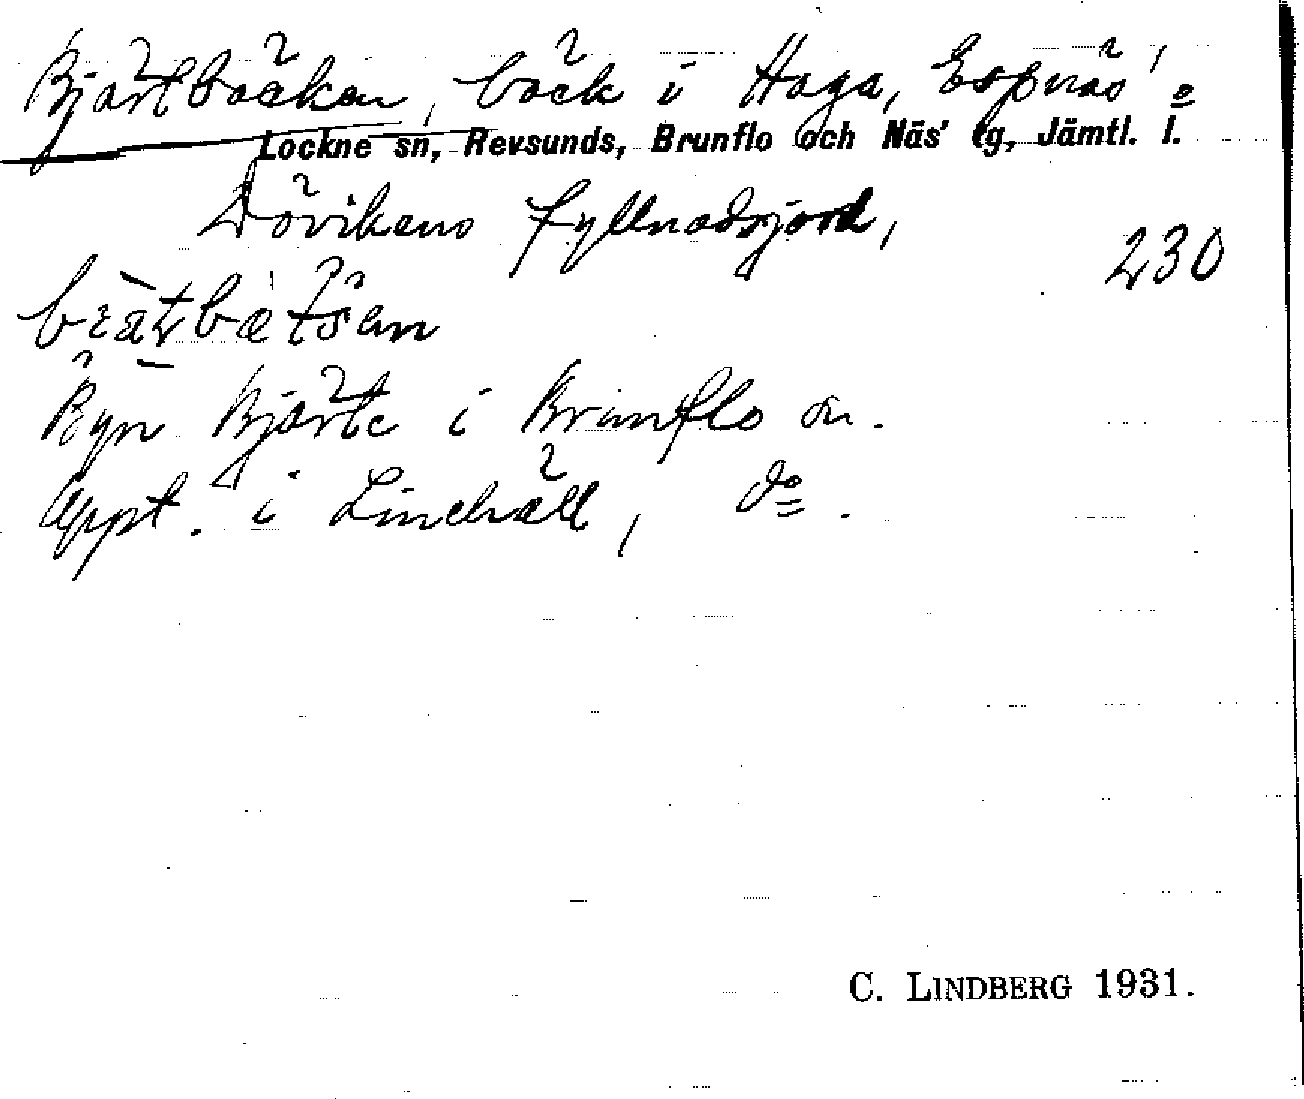 Bjärtbäcken, bäck i Haga, Espnäs o
Lockne sn, Revsunds, Brunflo och Näs' tg, Jämtl. l.
Dövikens fyllnadsjord,
230
Byn Bjärte i Brunflo sn.
Uppt. i Linehäll, do.
C. LINDBERG 1931.